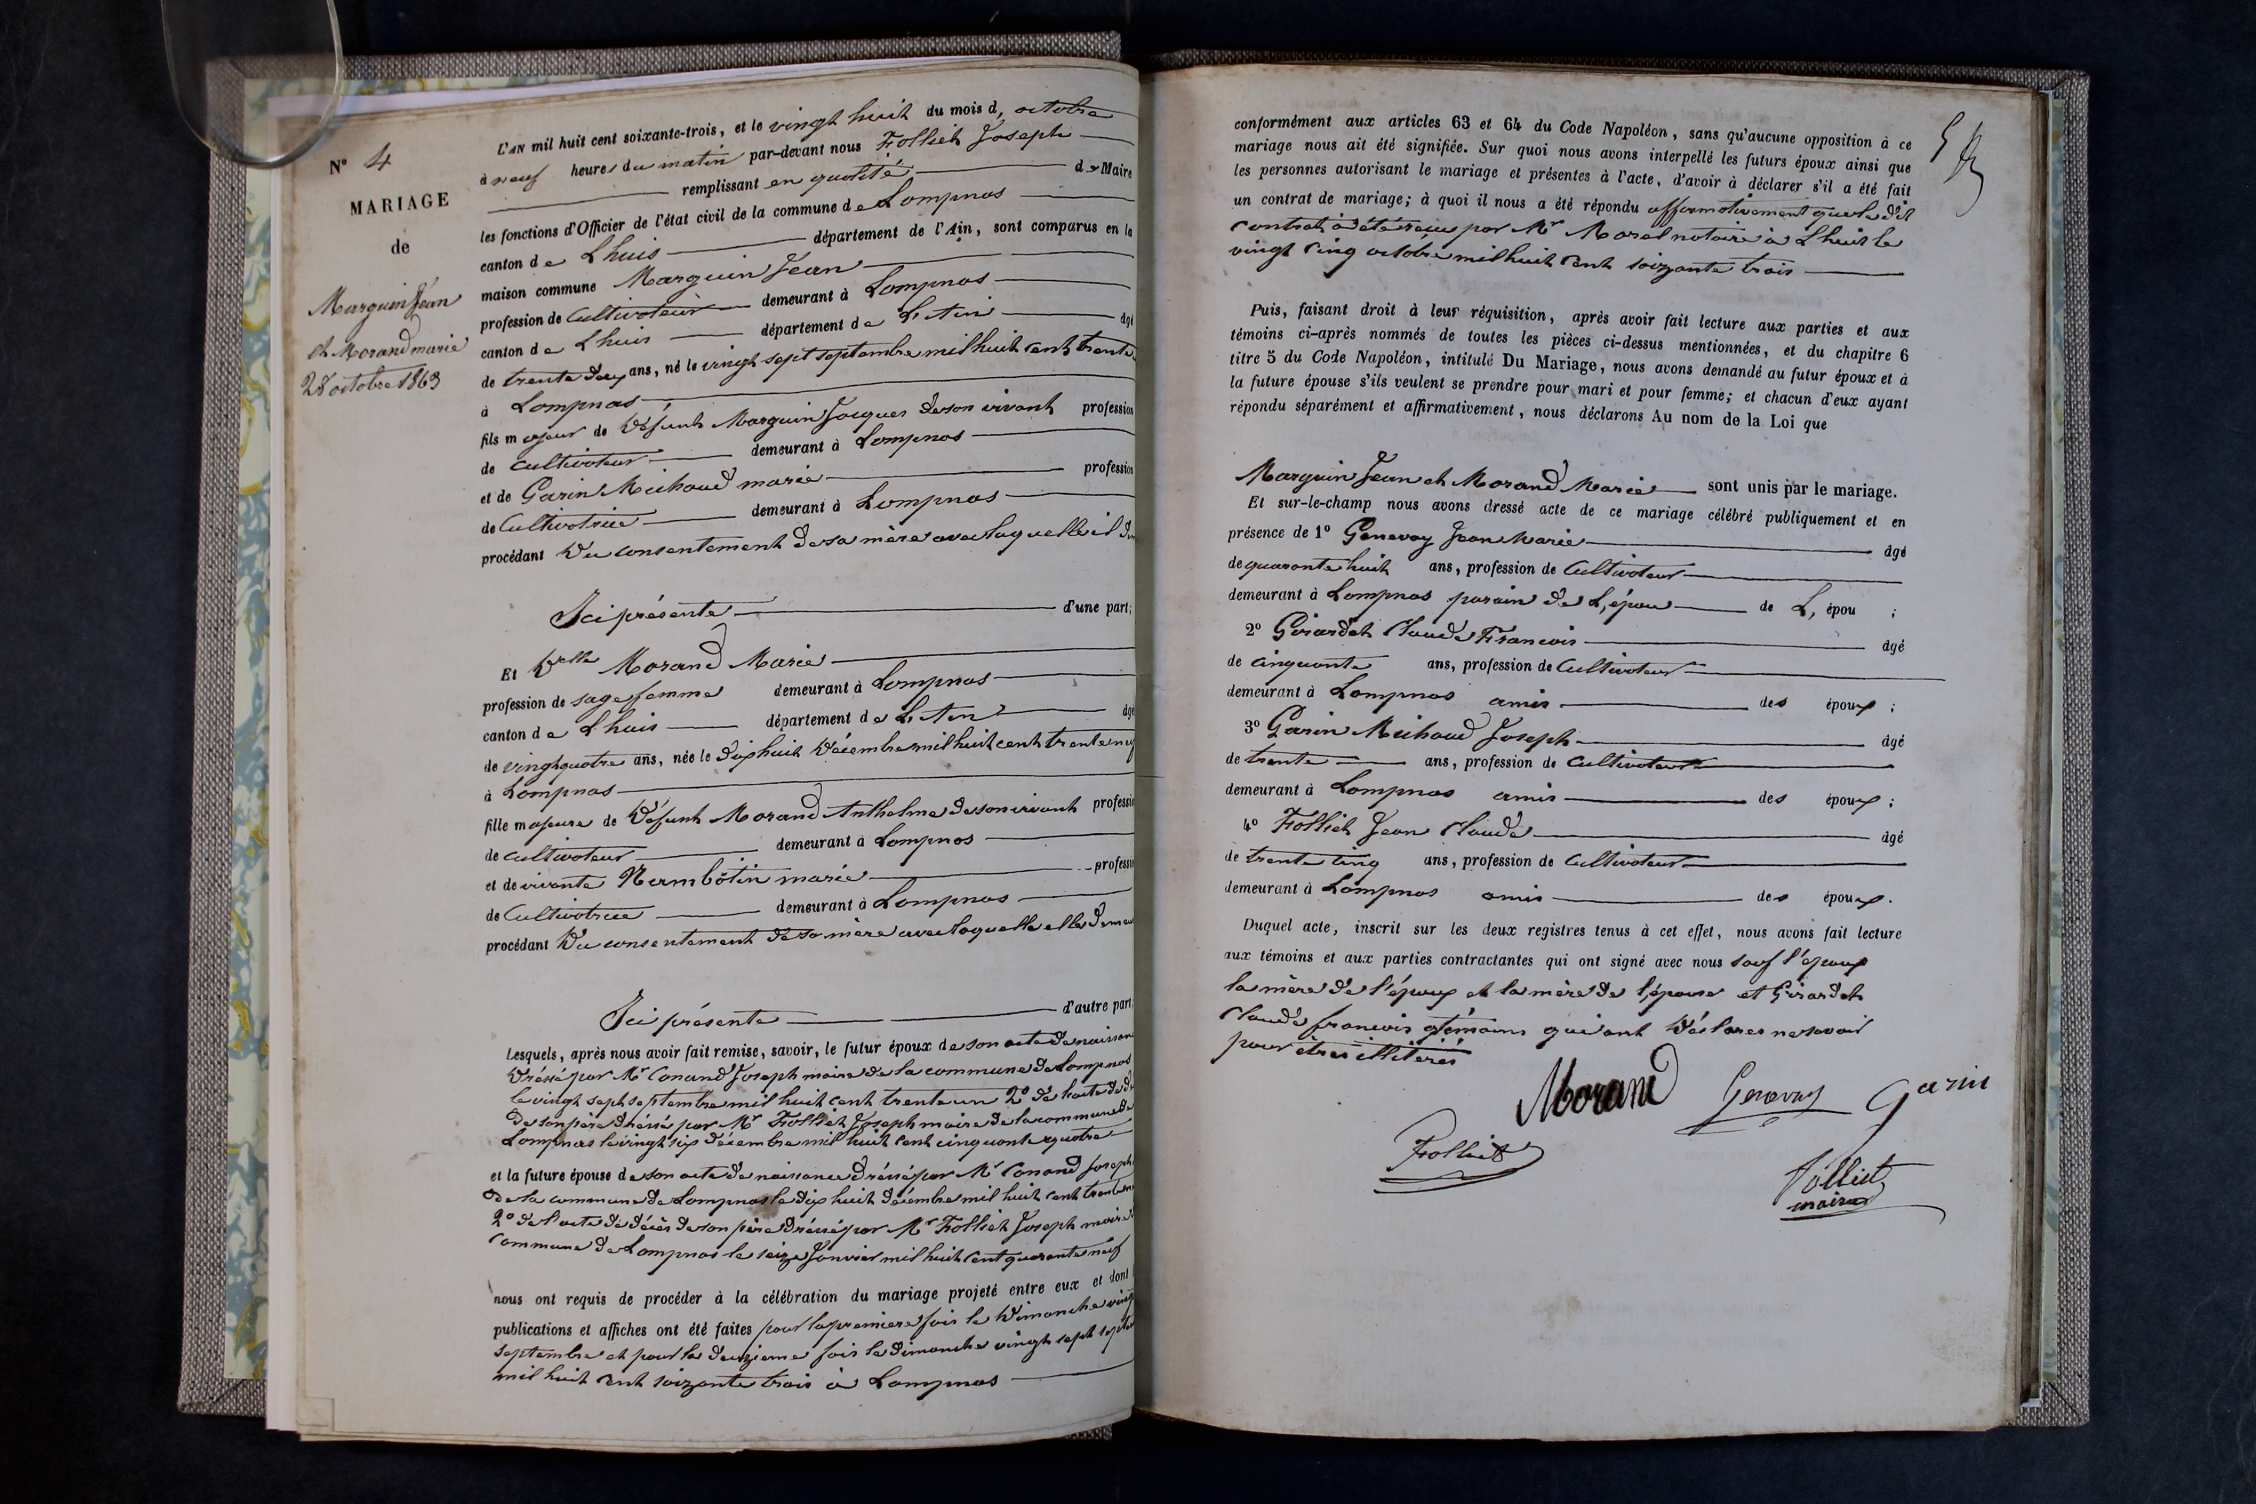 N° 4
MARIAGE
de
Marguin Jean
et Morand marie
28 octobre 1863
L'AN mil huit cent soixante-trois, et le vingt huit du mois d, octobre
à neuf heures du matin par-devant nous Folliet Joseph
remplissant en qualité de Maire
les fonctions d'Officier de l'état civil de la commune de Lompnas
canton de Lhuis département de l'Ain, sont comparus en la
maison commune Marguin Jean
profession de Cultivateur demeurant à Lompnas
canton de Lhuis département de L'Ain âgé
de trente deux ans, né le vingt sept septembre mil huit cent trente
à Lompnas
fils majeur de Défunt Marguin Jacques de son vivant profession
de cultivateur demeurant à Lompnas
et de Garin Michaud marie profession
de Cultivatrice demeurant à Lompnas
procédant Du consentement de sa mère avec laquelle il
Ici présente d'une part;
Et Delle Morand Marie
profession de sage femme demeurant à Lompnas
canton de Lhuis département de L'Ain âgé
de vingt quatre ans, née le dix huit Décembre mil huit cent trente neuf
à Lompnas
fille majeure de Défunt Morand Anthelme de son vivant professio
de cultivateur demeurant à Lompnas
et de vivante Nambotin marie professio
de Cultivatrice demeurant à Lompnas
procédant Du consentement de sa mère avec laquelle elle demeu
Ici présente d'autre part
Lesquels, après nous avoir fait remise, savoir, le futur époux de son acte de naissan
Dréssé par Mr Conand Joseph maire de la commune de Lompnas
le vingt sept septembre mil huit cent trente un 2° de l'acte de dé
de son père dréssé par Mr Folliet Joseph maire de la commune de
Lompnas le vingt six décembre mil huit cent cinquante quatre
et la future épouse de son acte de naissance dréssé par Mr Conand Joseph
de la commune de Lompnas le dix huit décembre mil huit cent trente
2° de l'acte de décès de son père dréssé par Mr Folliet Joseph maire
commune de Lompnas le seize Janvier mil huit cent quarante neuf
nous ont requis de procéder à la célébration du mariage projeté entre eux et dont
publications et affiches ont été faites pour la premiere fois le Dimanche vingt
septembre et pour la deuzieme fois le dimanche vingt sept septe
mil huit cent soizante trois à Lompnas
conformément aux articles 63 et 64 du Code Napoléon, sans qu'aucune opposition à ce
mariage nous ait été signifiée. Sur quoi nous avons interpellé les futurs époux ainsi que
les personnes autorisant le mariage et présentes à l'acte, d'avoir à déclarer s'il a été fait
un contrat de mariage; à quoi il nous a été répondu affirmativement que le dit
contrat à été reçu par Mr Morel notaire à Lhuis le
vingt cinq octobre mil huit cent soizante trois
Puis, faisant droit à leur réquisition, après avoir fait lecture aux parties et aux
témoins ci-après nommés de toutes les pièces ci-dessus mentionnées, et du chapitre 6
titre 5 du Code Napoléon, intitulé Du Mariage, nous avons demandé au futur époux et à
la future épouse s'ils veulent se prendre pour mari et pour femme; et chacun d'eux ayant
répondu séparément et affirmativement, nous déclarons Au nom de la Loi que
Marguin Jean et Morand Marie sont unis par le mariage.
Et sur-le-champ nous avons dressé acte de ce mariage célébré publiquement et en
présence de 1° Genevay Jean Marie âgé
de quarante huit ans, profession de Cultivateur
demeurant à Lompnas parain de L,épou de L, épou ;
2° Girardet Claude Francois âgé
de cinquante ans, profession de Cultivateur
demeurant à Lompnas amis des époux ;
3° Garin Michaud Joseph âgé
de trente ans, profession de Cultivateur
demeurant à Lompnas amis des époux ;
4° Folliet Jean Claude âgé
de trente cinq ans, profession de Cultivateur
demeurant à Lompnas amis des époux.
Duquel acte, inscrit sur les deux registres tenus à cet effet, nous avons fait lecture
aux témoins et aux parties contractantes qui ont signé avec nous sauf l'epoux
la mère de l'époux et la mère de l'épouse et Girardet
Claude francois témoins qui ont déclarer ne savoir
pour être illiterés
Morand Genevay Garin
Folliet
Folliet
maire